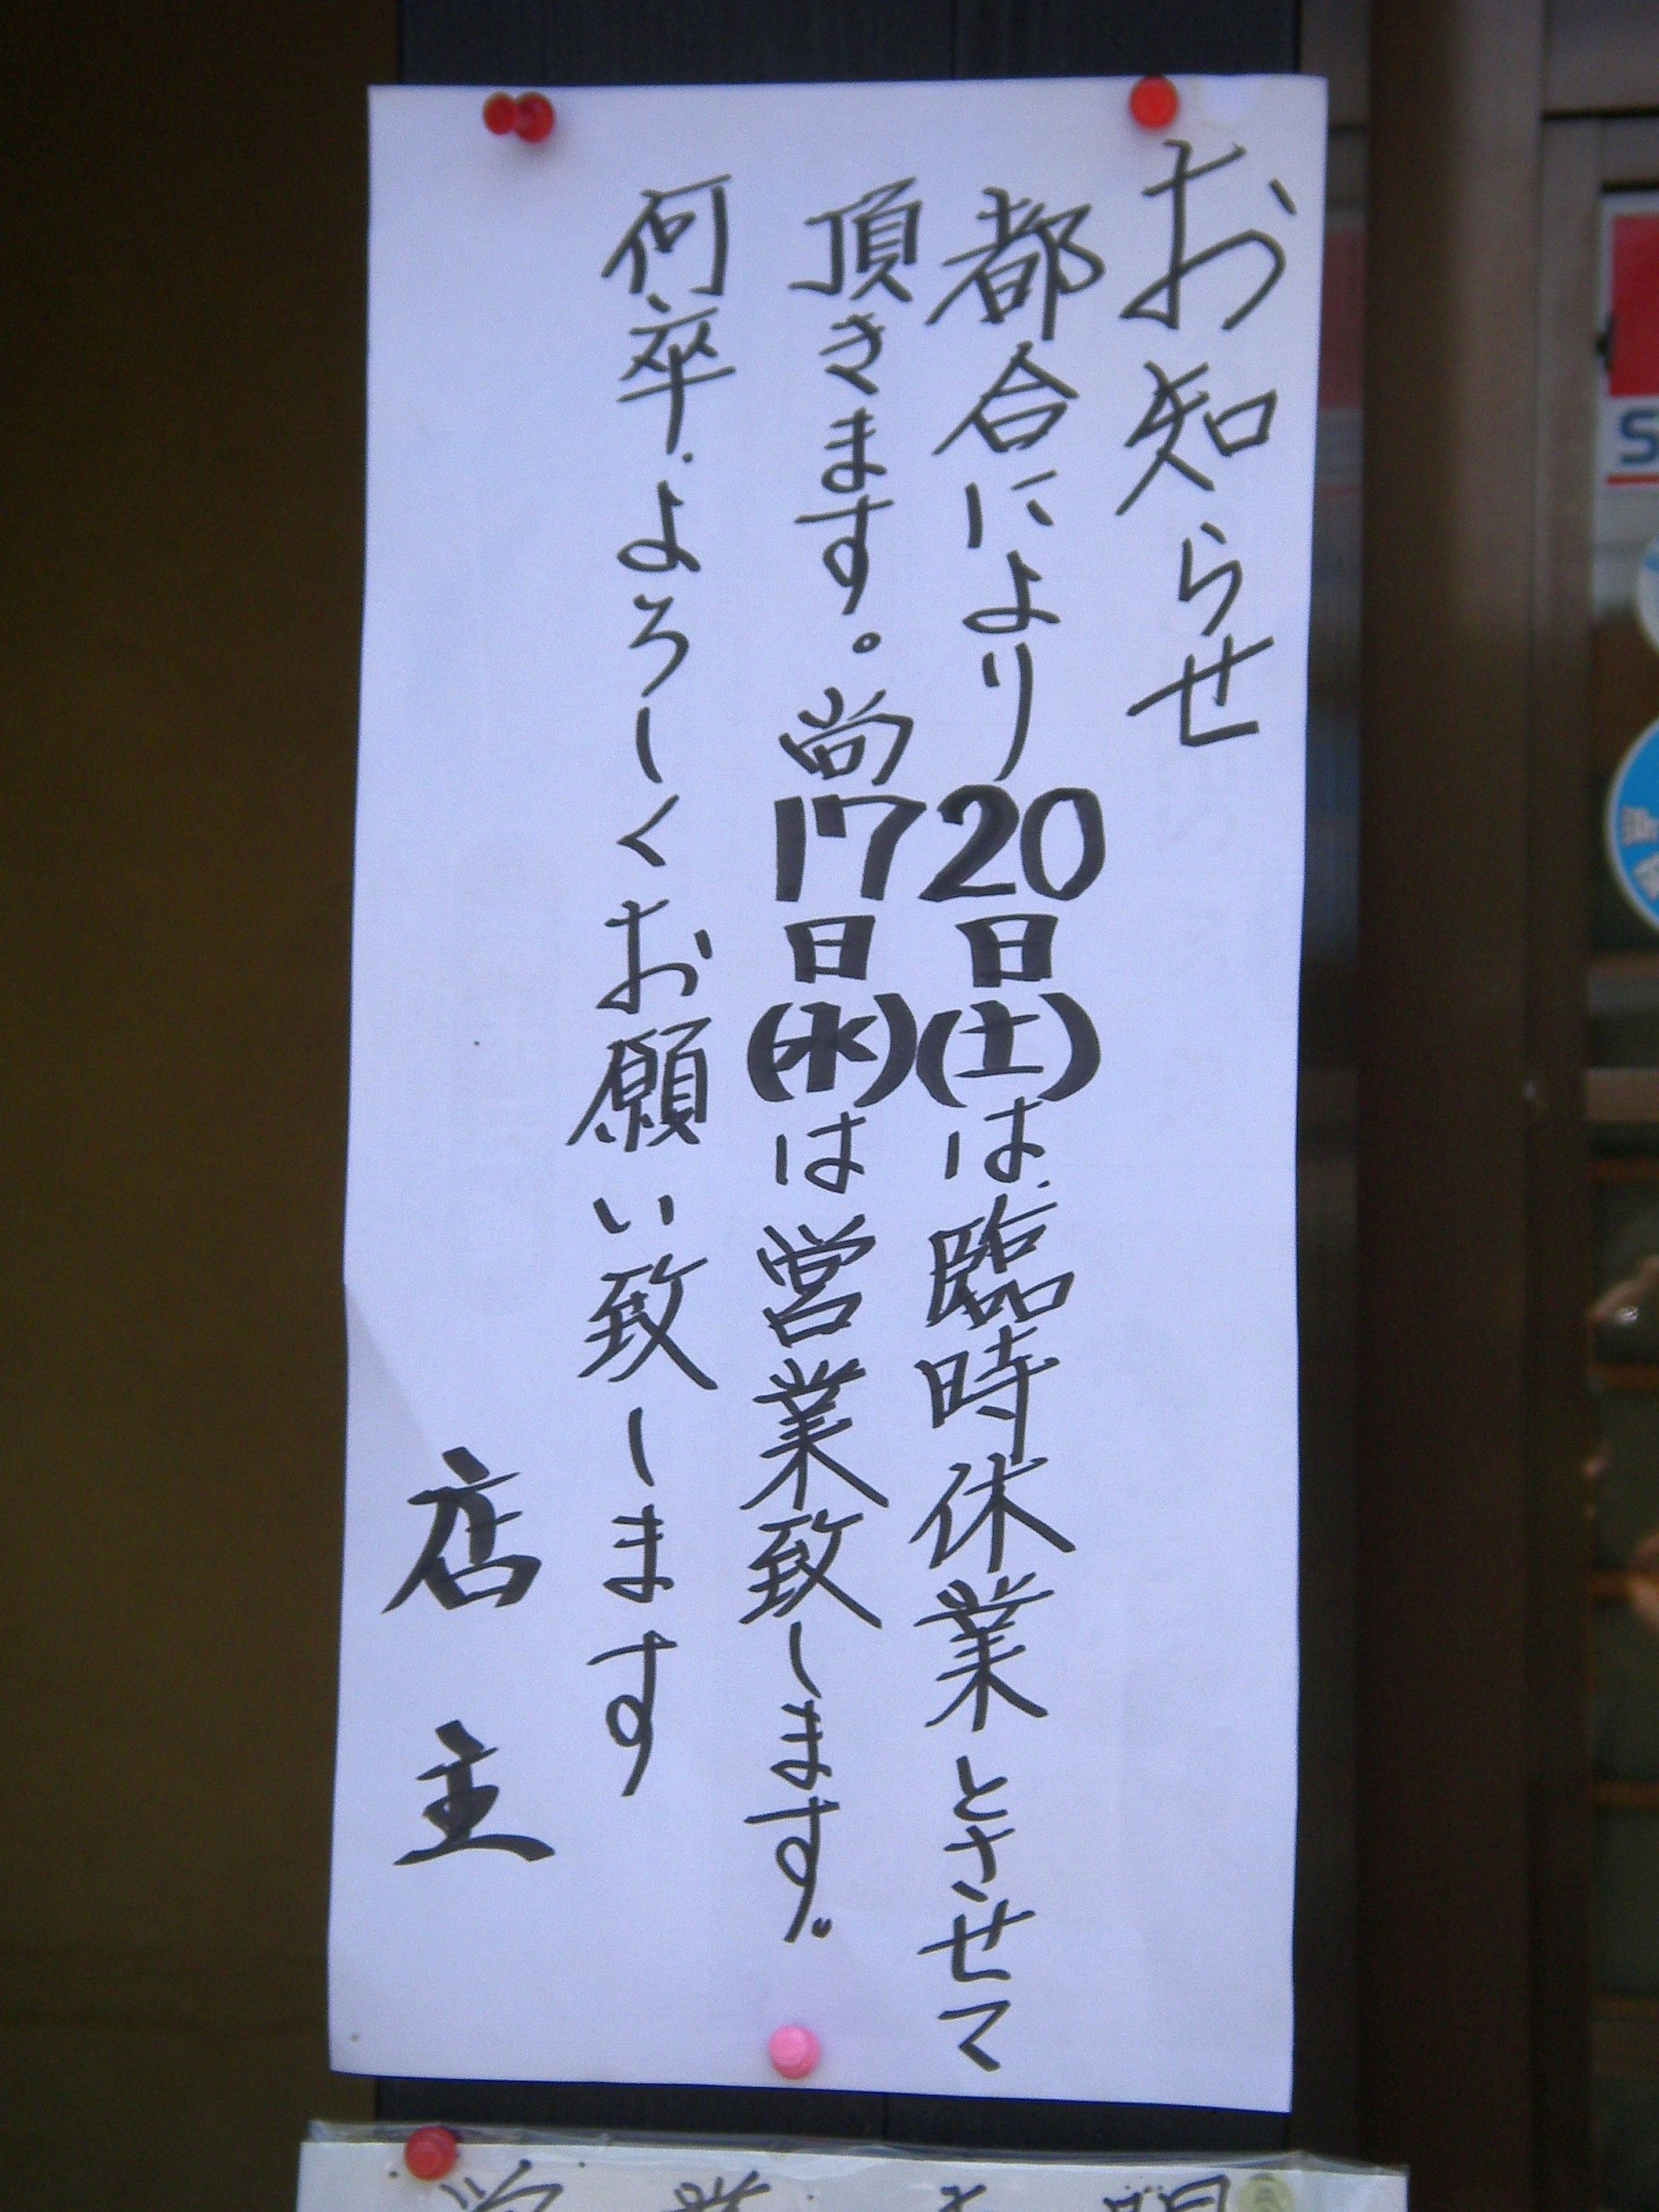 お知らせ
都合により20日(土)は臨時休業とさせて
頂きます。尚17日(水)は営業致します。
何卒.よろしくお願い致します
店主